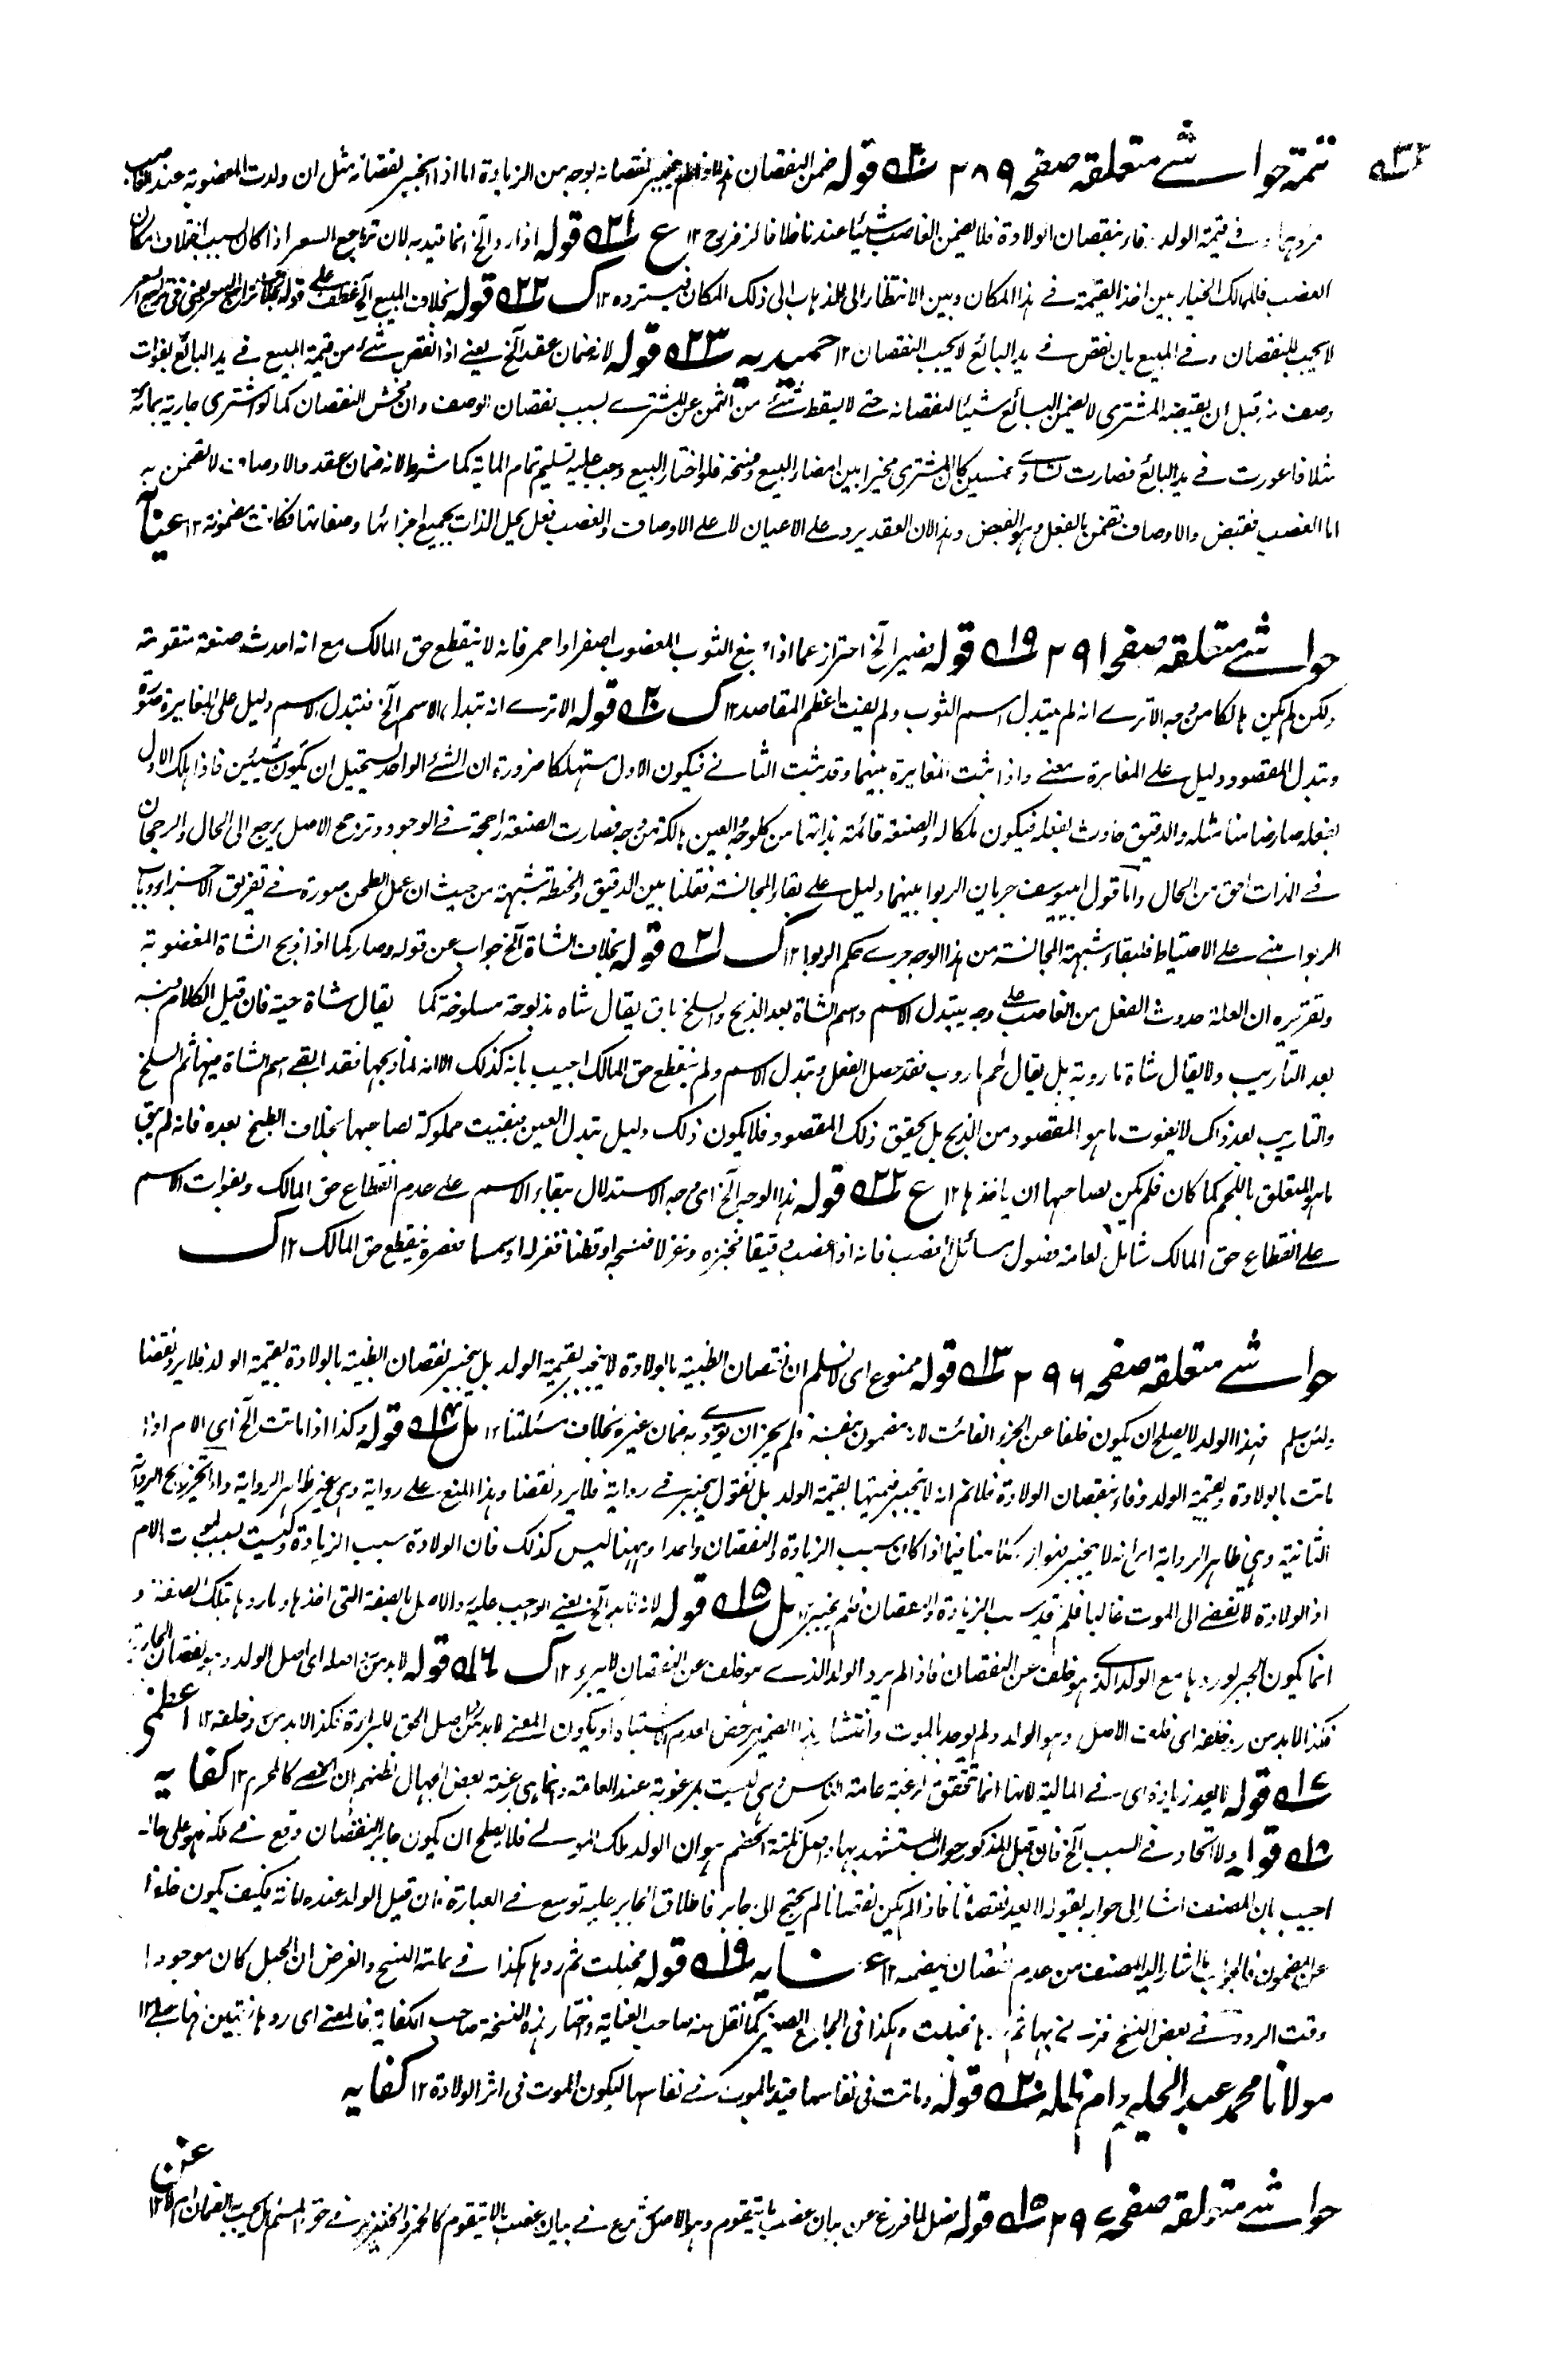 تتمة حواشے متعلقہ صفحہ ٢٨٩ ٢٠ قوله ضمن النقصان هذا اذا لم ينجبر نقصانه بوجه من الزيادة اما اذا انجبر نقصانه مثل ان ولدت المغصوبة عند الغاصب
فردها وفے قيمة الولد وفاء بنقصان الولادة فلا يضمن الغاصب شيئا عندنا خلافا لزفر رح ١٢ ع ٢١ قوله اذا رد الخ انما قيد به لان تراجع السعر اذا كان بسبب اختلاف مكان
الغصب فللمالك الخيار بين اخذ القيمة فے هذا المكان وبين الانتظار الى الذهاب الى ذلك المكان فيسترده ١٢ ك ٢٢ قوله بخلاف المبيع الخ عطف على قوله بخلاف تراجع السعر يعنى فى تراجع السعر
لا يجب للنقصان وفے المبيع بان نقص فے يد البائع لا يجب النقصان ١٢ حميديه ٢٣ قوله لانه ضمان عقد الخ يعنے اذا نقص شئ من قيمة المبيع فے يد البائع بفوات
وصف منه قبل ان يقبضه المشترى لا يضمن البائع شيئا لنقصانه حتے لا يسقط شئ من الثمن عن المشترے بسبب نقصان الوصف وان فحش النقصان كما لو اشترى جارية بمائة
مثلا فاعورت فے يد البائع فصارت تساوے خمسين كان المشترى مخيرا بين امضاء البيع وفسخه فلو اختار البيع وجب عليه تسليم تمام المائة كما شرط لانه ضمان عقد والاوصاف لا تضمن به
اما الغصب فقبض والاوصاف تضمن بالفعل وهو القبض وهذا لان العقد يرد على الاعيان لا على الاوصاف والغصب فعل يحل الذات بجميع اجزائها وصفاتها فكانت مضمونة ١٢ عيناً
حواشے متعلقہ صفحہ ٢٩١ ١٩ قوله بغير الخ احتراز عما اذا صبغ الثوب المغصوب اصفر او احمر فانه لا ينقطع حق المالك مع انه احدث صنعة متقومة
ولكن لم يكن هالكا من وجه الا ترے انه لم يتبدل اسم الثوب ولم يفت اعظم المقاصد ١٢ ك ٢٠ قوله الا ترے انه تبدل الاسم الخ فتبدل الاسم دليل على المغايرة صورة
وتبدل المقصود دليل على المغايرة معنے واذا ثبت المغايرة بينهما وقد ثبت الثانے فيكون الاول مستهلكا ضرورة ان الشئ الواحد يستحيل ان يكون شيئين فاذا هلك الاول
بفعله صار ضامنا مثله والدقيق حادث بفعله فيكون ملكا له والصنعة قائمة بذاتها من كل وجه والعين هالكة من وجه فصارت الصنعة راجحة فے الوجود وترجيح الاصل يرجع الى الحال والرجحان
فے الذات احق من الحال واما قول ابے يوسف جريان الربوا بينهما دليل على بقاء المجانسة فقلنا بين الدقيق والحنطة شبهة من حيث ان عمل الطحن صورة فے تفريق الاجزاء وباب
الربوا مبنے على الاحتياط فلبقاء شبهة المجانسة من هذا الوجه جرے حكم الربوا ١٢ ك ٢١ قوله بخلاف الشاة الخ جواب عن قوله وصار كما اذا ذبح الشاة المغصوبة
وتقريره ان العلة حدوث الفعل من الغاصب على وجه يتبدل الاسم واسم الشاة بعد الذبح والسلخ باق يقال شاه مذبوحة مسلوخة كما يقال شاة حية فان قيل الكلام فيه
بعد التاريب ولا يقال شاة ماروبة بل يقال لحم ماروب فقد حصل الفعل وتبدل الاسم ولم ينقطع حق المالك اجيب بانه كذلك الا انه لما ذبحها فقد ابقے اسم الشاة فيها ثم السلخ
والتاريب بعد ذلك لا يفوت ما هو المقصود من الذبح بل يحقق ذلك المقصود فلا يكون ذلك دليل تبدل العين فبقيت مملوكة لصاحبها بخلاف الطبخ بعده فانه لم يبق
ما هو المتعلق باللحم كما كان فلم يكن لصاحبها ان ياخذها ١٢ ع ٢٢ قوله هذا الوجه الخ اى وجه الاستدلال ببقاء الاسم على عدم انقطاع حق المالك وبفوات الاسم
على انقطاع حق المالك شامل لعامة فصول مسائل الغصب فانه اذا غصب دقيقا فخبزه وغزلا فنسجه او قطنا فغزله او سمسما فعصره ينقطع حق المالك ١٢ ك
حواشے متعلقہ صفحہ ٢٩٦ ١٣ قوله ممنوع اى لا نسلم ان نقصان الظبية بالولادة لا ينجبر بقيمة الولد بل ينجبر نقصان الظبية بالولادة بقيمة الولد فلا يرد نقضا
ولئن سلم فهذا الولد لا يصلح ان يكون خلفا عن الجزء الفائت لانه مضمون بنفسه فلم يجز ان يؤدے به ضمان غيره بخلاف مسئلتنا ١٢ مل ١٤ قوله وكذا اذا ماتت الخ اي الام اذا
ماتت بالولادة وبقيمة الولد وفاء بنقصان الولادة فلا نم انه لا ينجبر قيمتها بقيمة الولد بل نقول ينجبر فے رواية فلا يرد نقضا وهذا المنع على رواية وهى غير ظاهر الرواية
الثانية وهى ظاهر الرواية انه لا ينجبر فنقول كلامنا فيما اذا كان سبب الزيادة والنقصان واحدا وههنا ليس كذلك فان الولادة سبب الزيادة وليست بسبب لموت الام
اذ الولادة لا تفضے الى الموت غالبا فلم يتحد سبب الزيادة والنقصان فلم ينجبر ١٢ مل ١٥ قوله لانه لا بد الخ يعنے الواجب عليه رد الاصل بالصفة التى اخذها وما ردها بتلك الصفة و
انما يكون الجبر لو ردها مع الولد الذے هو خلف عن النقصان فاذا لم يرد الولد الذے هو خلف عن النقصان لا يبرء ١٢ ك ١٦ قوله لا بد من رد اصله اى اصل الولد وهو نقصان الجارية
فكذا لا بد من رد خلفه اى خلف الاصل وهو الولد ولم يوجد بالموت ١٢ اعظمى
١٧ قوله لا يعد زيادة اى فے المالية لانها انما تتحقق لرغبة عامة الناس وهى ليست بمرغوبة عند العامة وانما هى رغبة بعض الجهال لظنهم ان الخصے كالمحرم ١٢ كفايه
١٨ قوله ولا اتحاد فے السبب الخ فان قيل المذكور جواب المستشهد بها واصل نكتة الخصم هو ان الولد ملك المولے فلا يصلح ان يكون جابر النقصان وقع فے ملكه فهو على حاله
اجيب بان المصنف اشار الى جوابه بقوله لا يعد نقصانا فاذا لم يكن نقصانا لم يحتج الى جابر فاطلاق الجابر عليه توسع فے العبارة فان قيل الولد عنده امانة فكيف يكون خلفا
عن المضمون فالجواب ما اشار اليه المصنف من عدم النقصان فيضمه ١٢ عنايه ١٩ قوله فحبلت ثم ردها هكذا فے عامة النسخ والغرض ان الحبل كان موجودا
وقت الرد وفے بعض النسخ فحبلت وهكذا فى الجامع الصغير كما نقل عنه صاحب العناية واختار هذه النسخة صاحب الكفاية فالمعنے اى ردها فتبين انها حبلے ١٢
مولانا محمد عبد الحليم دام ظله ٢٠ قوله وماتت فى نفاسها قيد بالموت فے نفاسها ليكون الموت فى اثر الولادة ١٢ كفايه
حواشے متعلقہ صفحہ ٢٩٧ ١٥ قوله فصل لما فرغ عن بيان غصب ما يتقوم وهو الاصل شرع فے بيان غصب ما لا يتقوم كالخمر والخنزير فے حق المسلم هل يجب به الضمان ام لا ١٢
عن